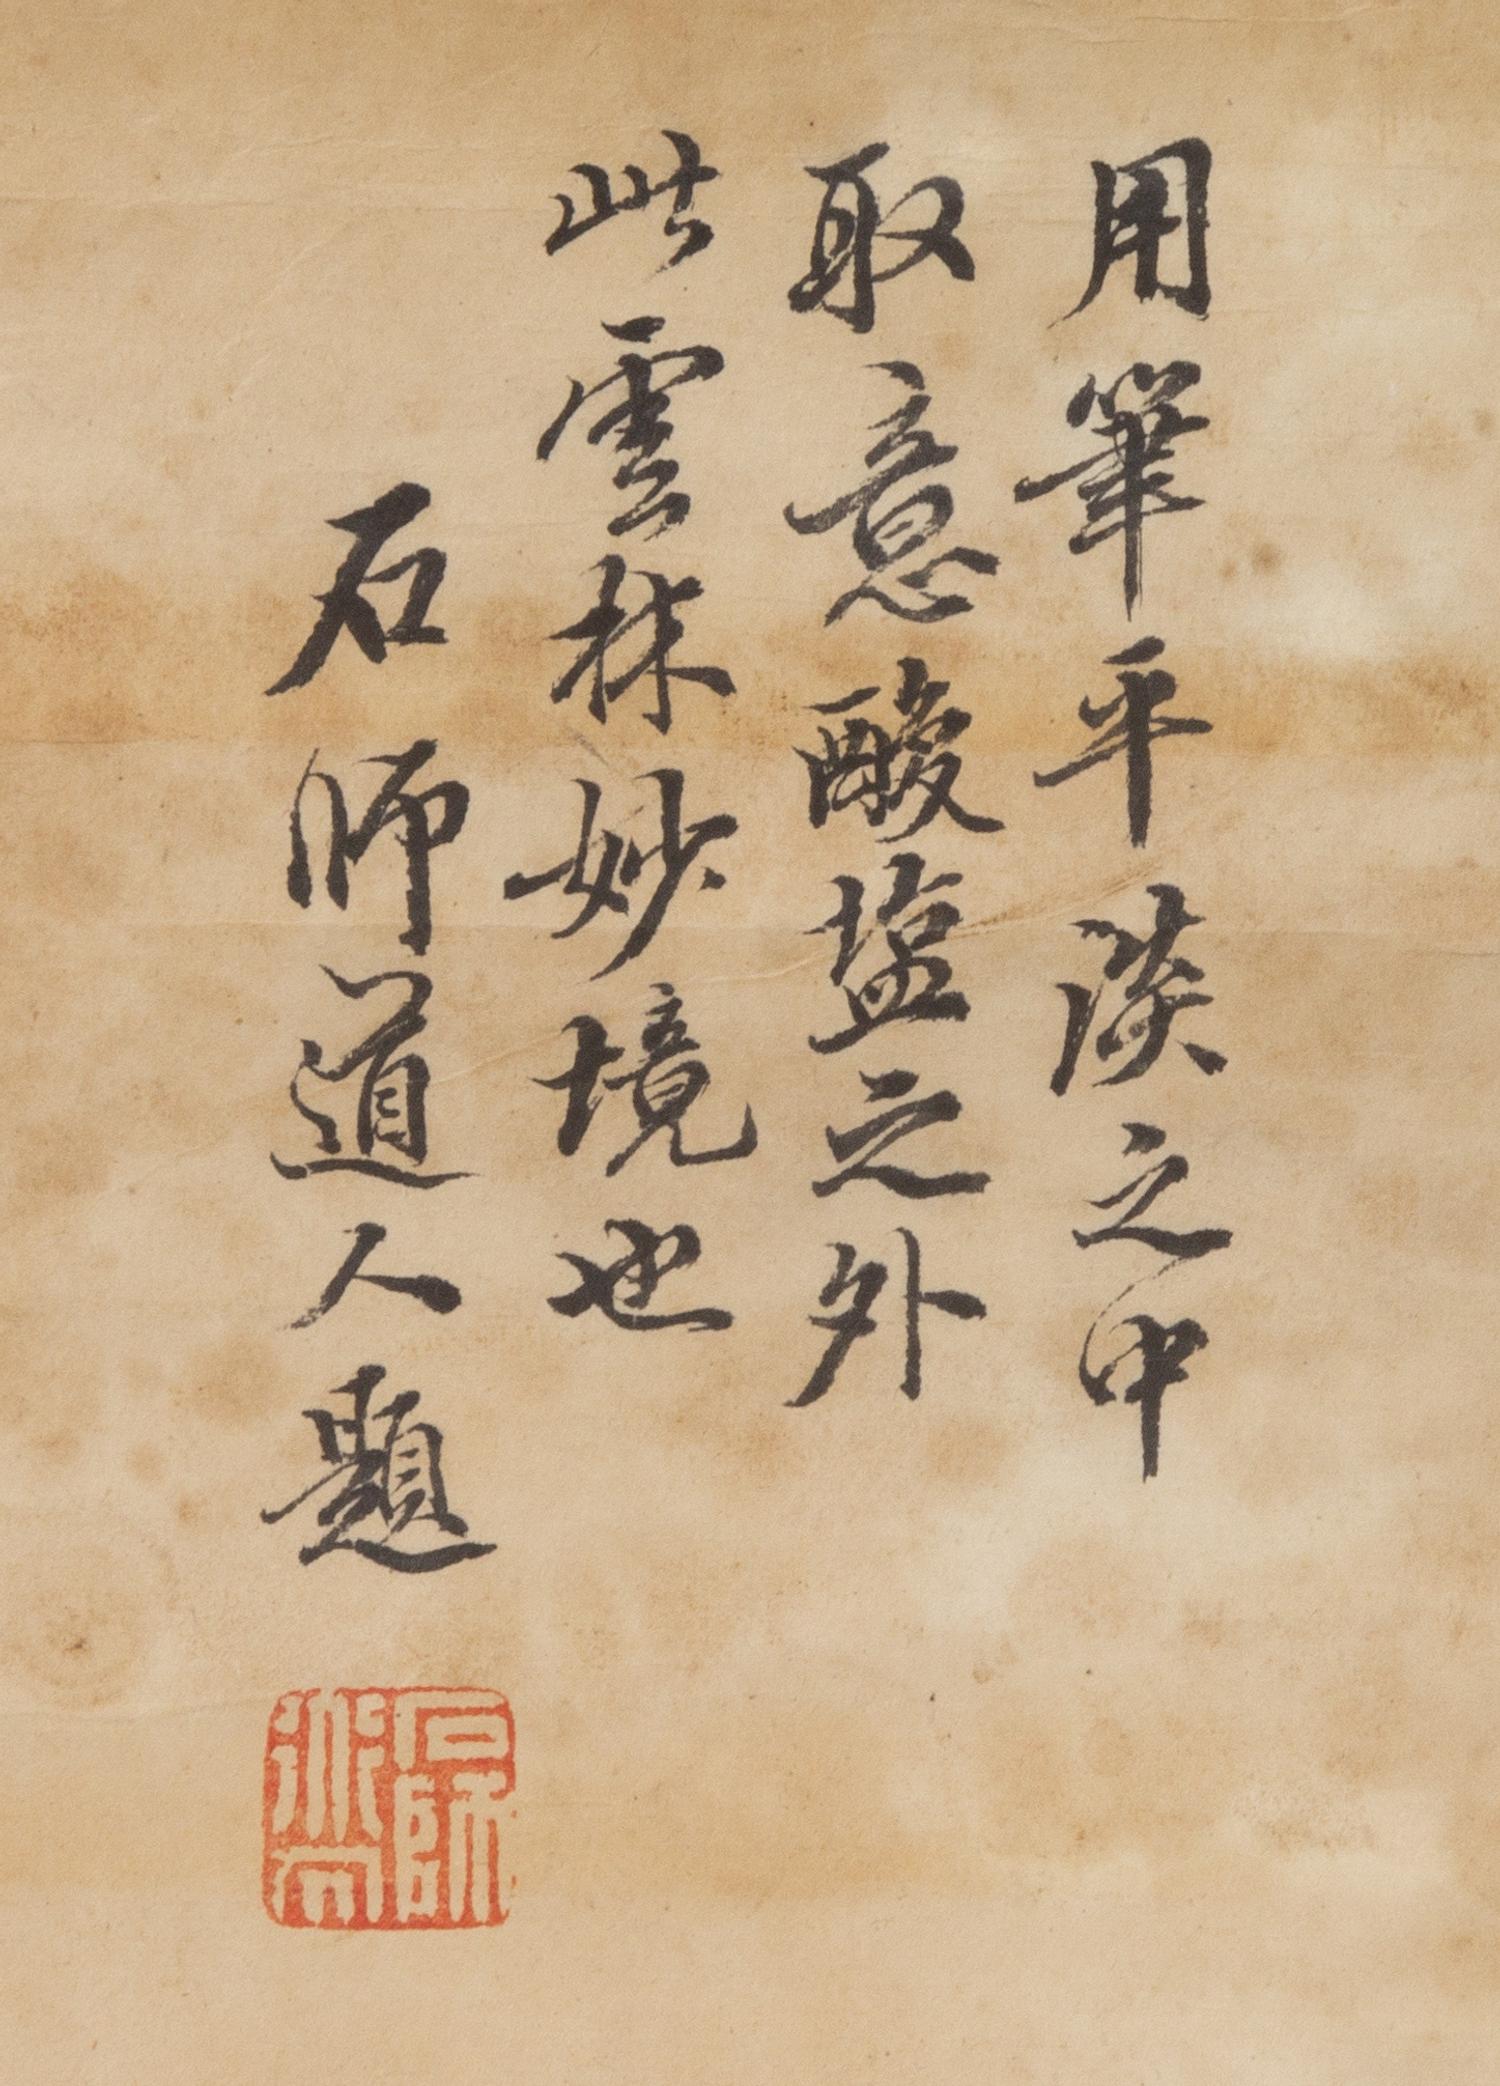 用筆平淡之中
取意酸塩之外
此雲林妙境也
石師道人題
石師道人